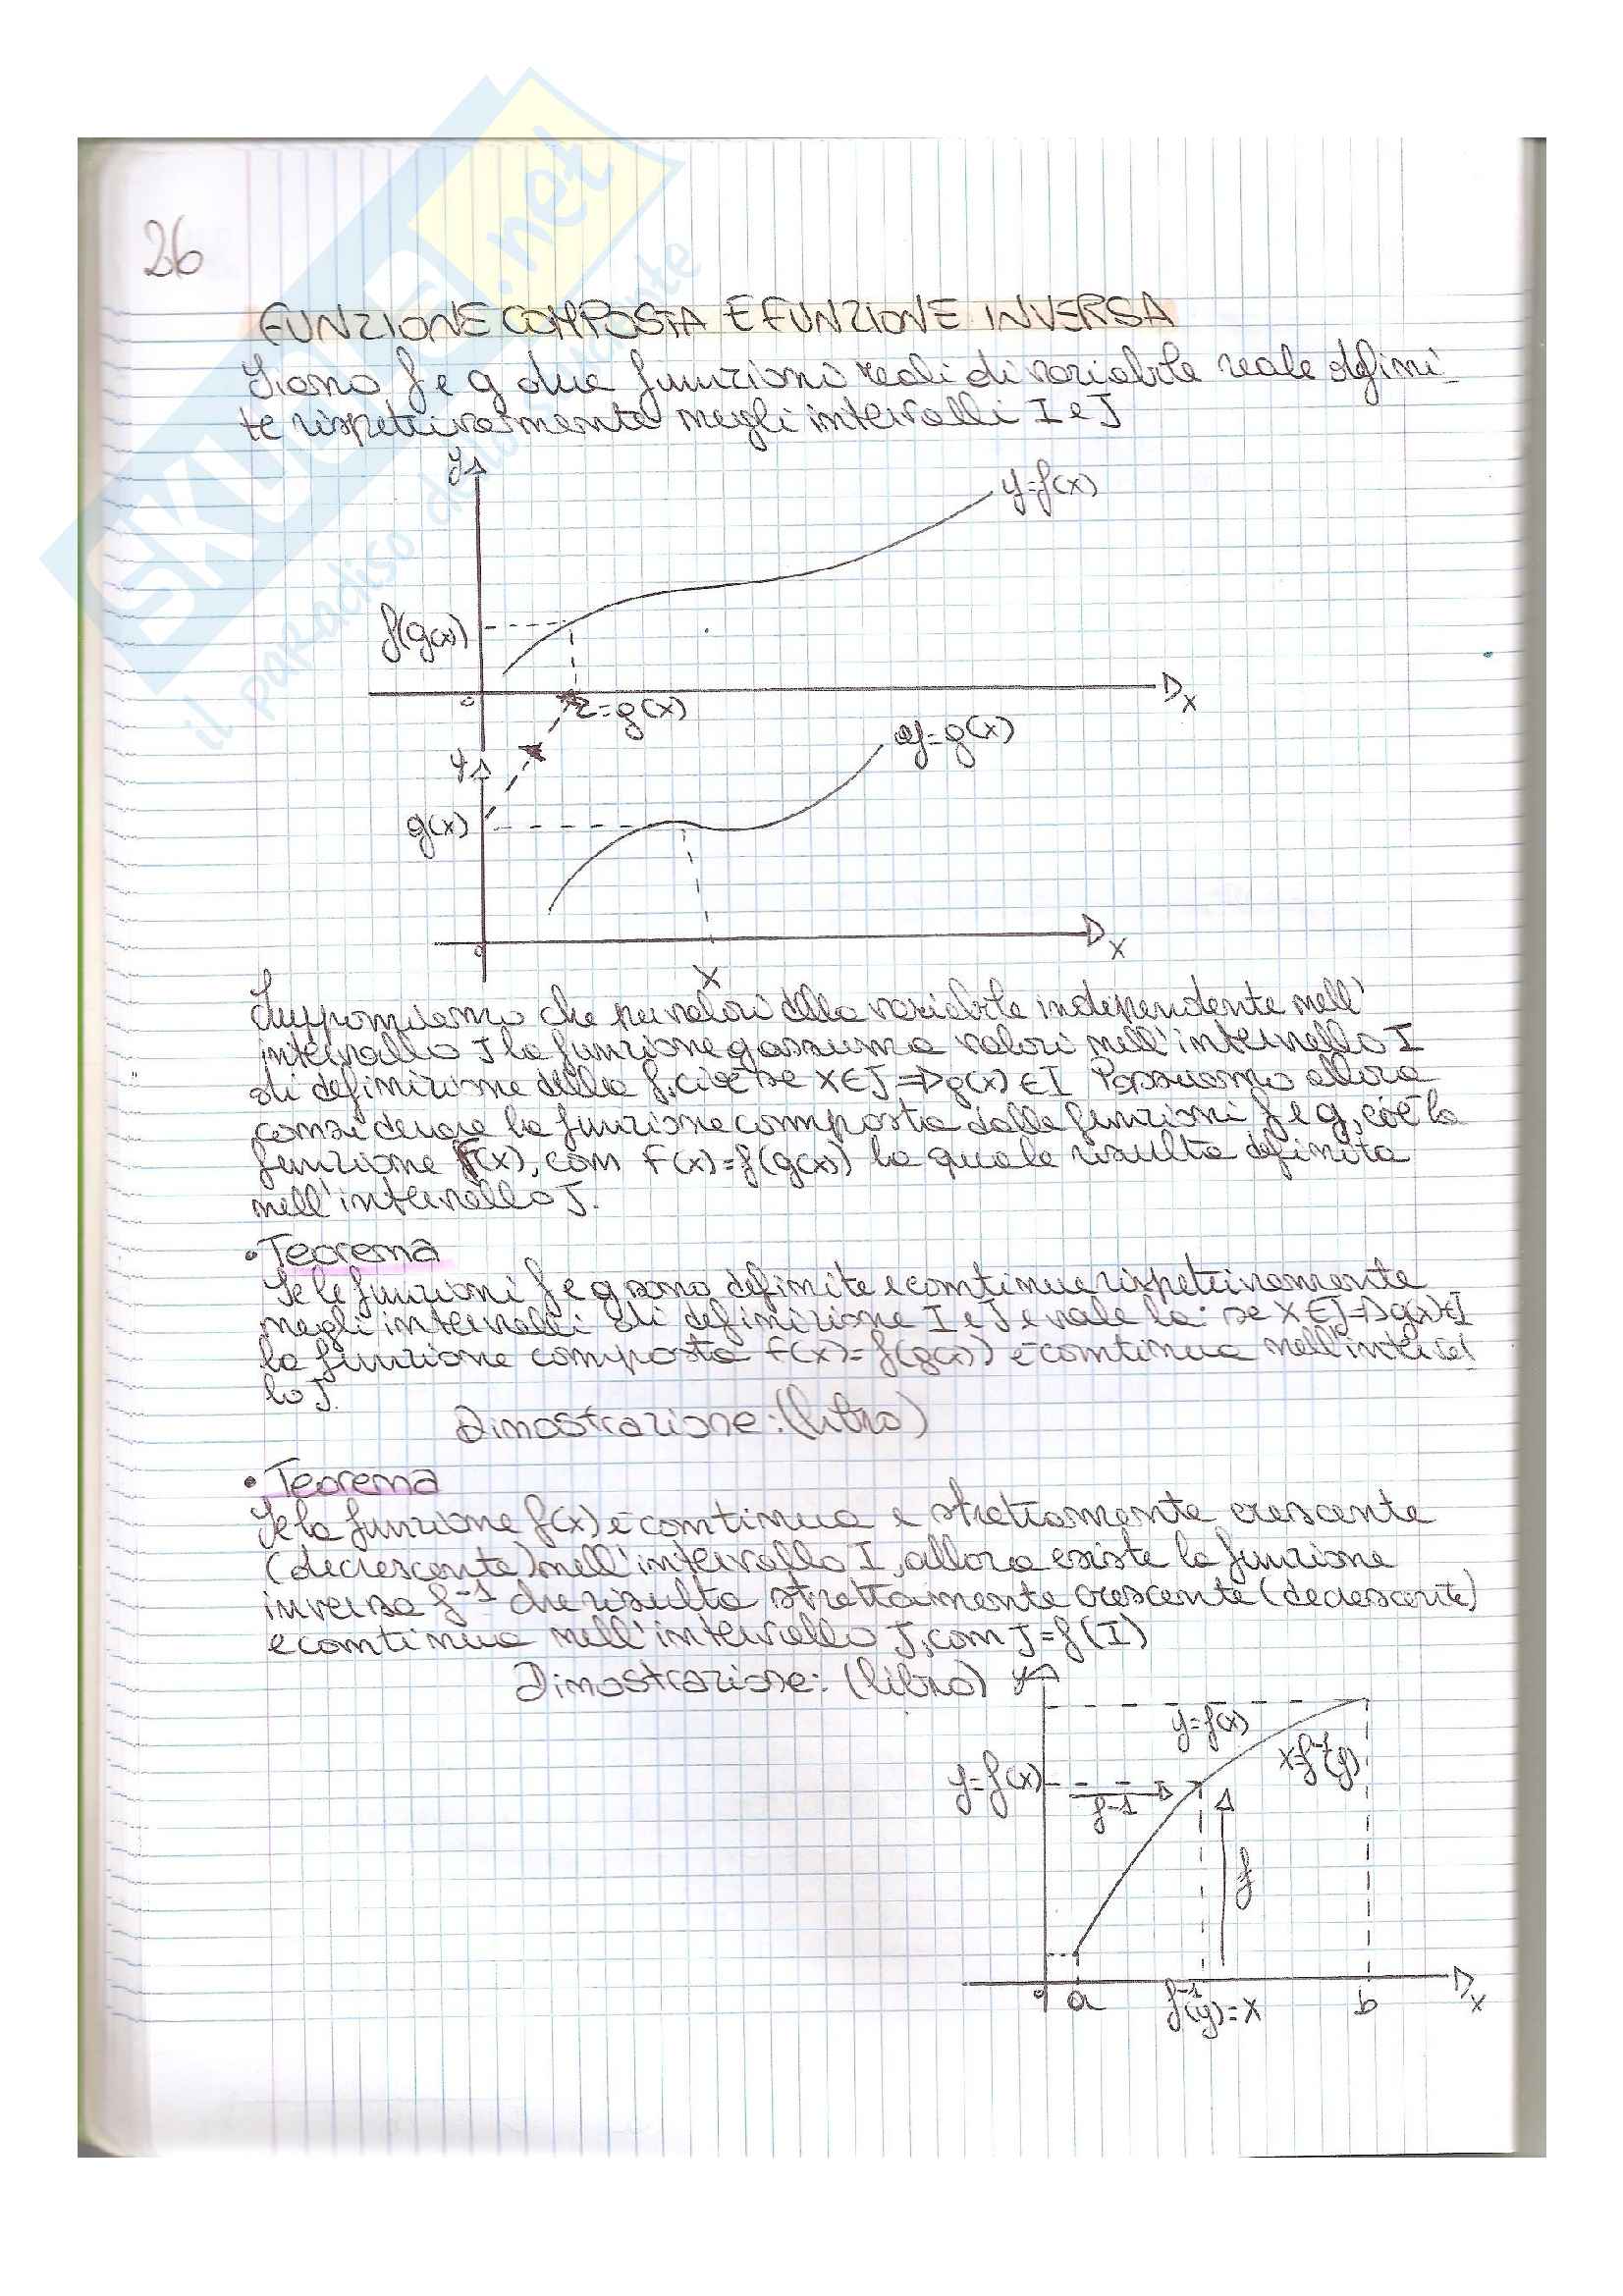 SKUOLA.net
il paradiso dello studente
26
FUNZIONE COMPOSTA E FUNZIONE INVERSA
Siano f e g due funzioni reali di variabile reale defini-
te rispettivamente negli intervalli I e J
y
y=f(x)
f(g(x))
o
x
z=g(x)
y
y=g(x)
g(x)
o
x
x
Supponiamo che per valori della variabile indipendente nell'
intervallo J la funzione g assuma valori nell'intervallo I
di definizione della f, cioè se x∈J ⇒ g(x)∈I Possiamo allora
considerare la funzione composta dalle funzioni f e g, cioè la
funzione F(x), con F(x)=f(g(x)) la quale risulta definita
nell'intervallo J.
• Teorema
Se le funzioni f e g sono definite e continue rispettivamente
negli intervalli di definizione I e J e vale la: se x∈J⇒g(x)∈I
la funzione composta F(x)=f(g(x)) è continua nell'interval
lo J.
Dimostrazione: (libro)
• Teorema
Se la funzione f(x) è continua e strettamente crescente
(decrescente) nell'intervallo I, allora esiste la funzione
inversa f⁻¹ che risulta strettamente crescente (decrescente)
e continua nell'intervallo J, con J=f(I)
Dimostrazione: (libro)
y
y=f(x)
x=f⁻¹(y)
y=f(x)
f⁻¹
f
o
a
f⁻¹(y)=x
b
x